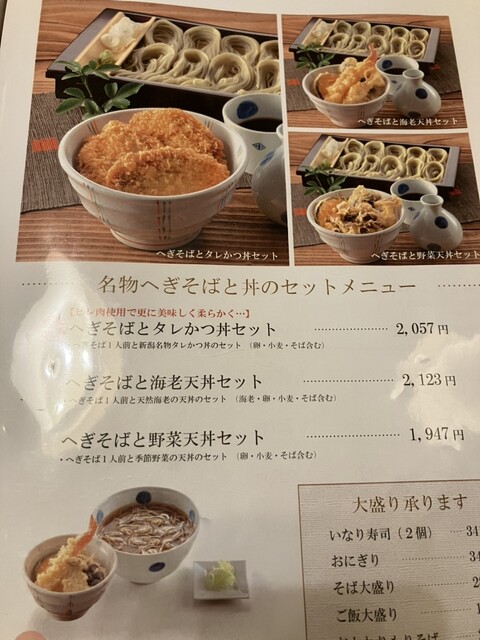 へぎそばとタレかつ丼セット
へぎそばと海老天丼セット
へぎそばと野菜天丼セット
名物へぎそばと丼のセットメニュー
【ヒレ肉使用で更に美味しく柔らかく…】
へぎそばとタレかつ丼セット 2,057円
・へぎそば1人前と新潟名物タレかつ丼のセット (卵・小麦・そば含む)
へぎそばと海老天丼セット 2,123円
・へぎそば1人前と天然海老の天丼のセット (海老・卵・小麦・そば含む)
へぎそばと野菜天丼セット 1,947円
・へぎそば1人前と季節野菜の天丼のセット (卵・小麦・そば含む)
大盛り承ります
いなり寿司(2個) 34
おにぎり 34
そば大盛り
ご飯大盛り